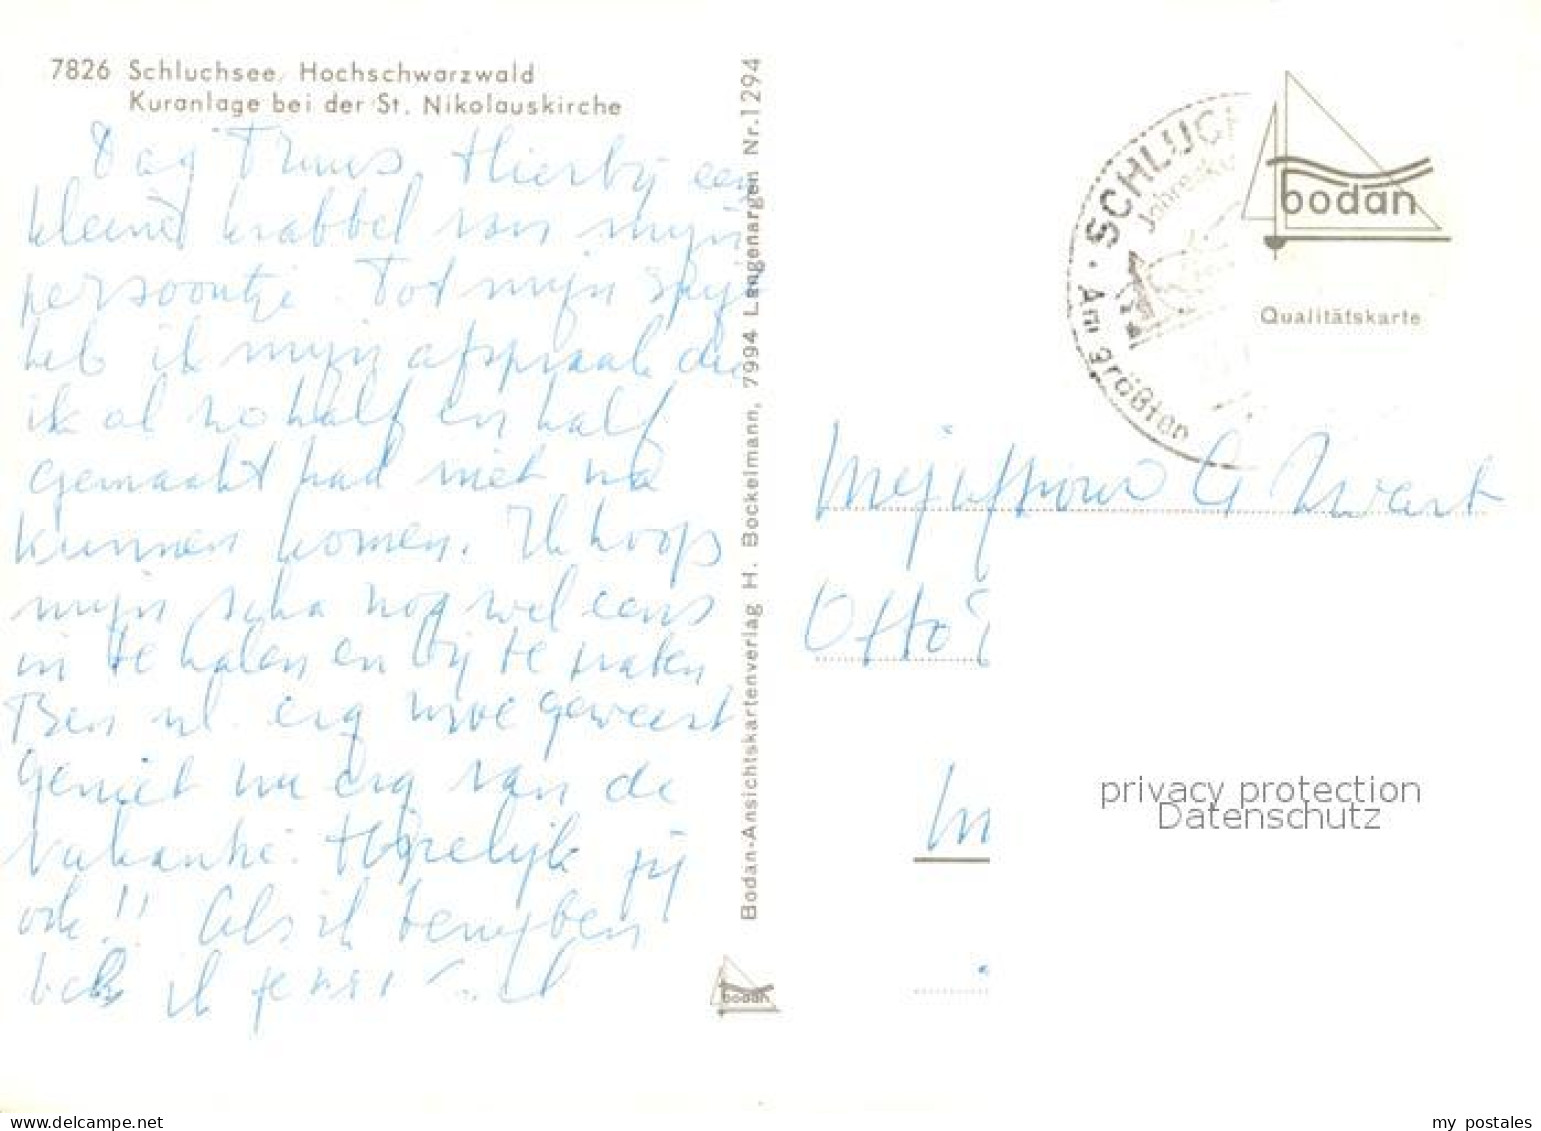 7826 Schluchsee, Hochschwarzwald
Kuranlage bei der St. Nikolauskirche
Dag Truus, Hierbij een
kleine krabbel van mijn
persoontje. Tot mijn spijt
heb ik mijn afspraak die
ik al zo half en half
gemaakt had niet na
kunnen komen. Ik hoop
mijn scha nog wel eens
in te halen en bij te praten
Ben nl. erg moe geweest
Geniet nu erg van de
Vakantie. Hopelijk jij
ook!! Als ik benejben
bel ik je
Bodan-Ansichtskartenverlag H. Bockelmann, 7994 Langenargen Nr. 1294
bodan
SCHLUCH
Jahresku
Am größten
bodan
Qualitätskarte
Mejuffrouw G Zwart
Otto
In
privacy protection
Datenschutz
www.delcampe.net
my_postales